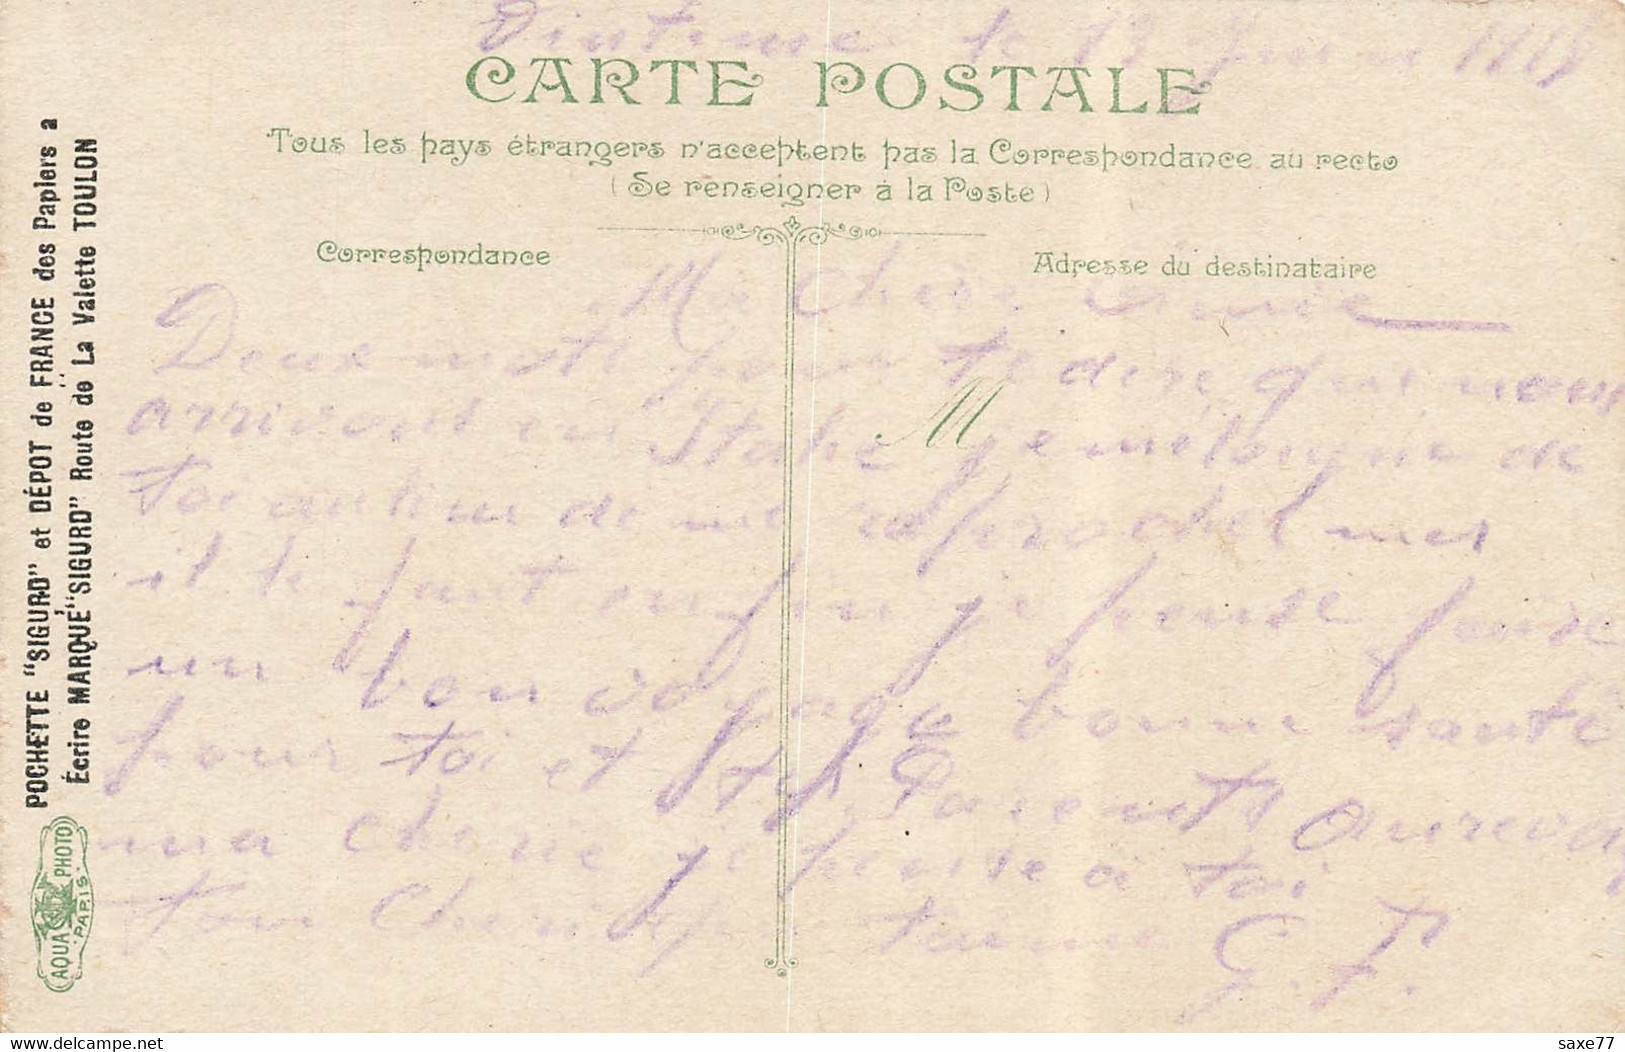 le 13 1918
CARTE POSTALE
Tous les pays étrangers n'acceptent pas la Correspondance au recto
(Se renseigner à la Poste)
Correspondance
Adresse du destinataire
M
Ma Chere
Deux mots pour te dire que nous
arrivont en Italie je meloigne de
toi de me raprochel mes
il le faut enfin je pense faire
un bon voyage bonne santé
pour toi et tes Parents
ma cherie je pense a toi
ton Cheri
G. F.
POCHETTE "SIGURD" et DÉPOT de FRANCE des Papiers a
Écrire MARQUE "SIGURD" Route de La Valette TOULON
AQUA PHOTO
PARIS
www.delcampe.net
saxe77